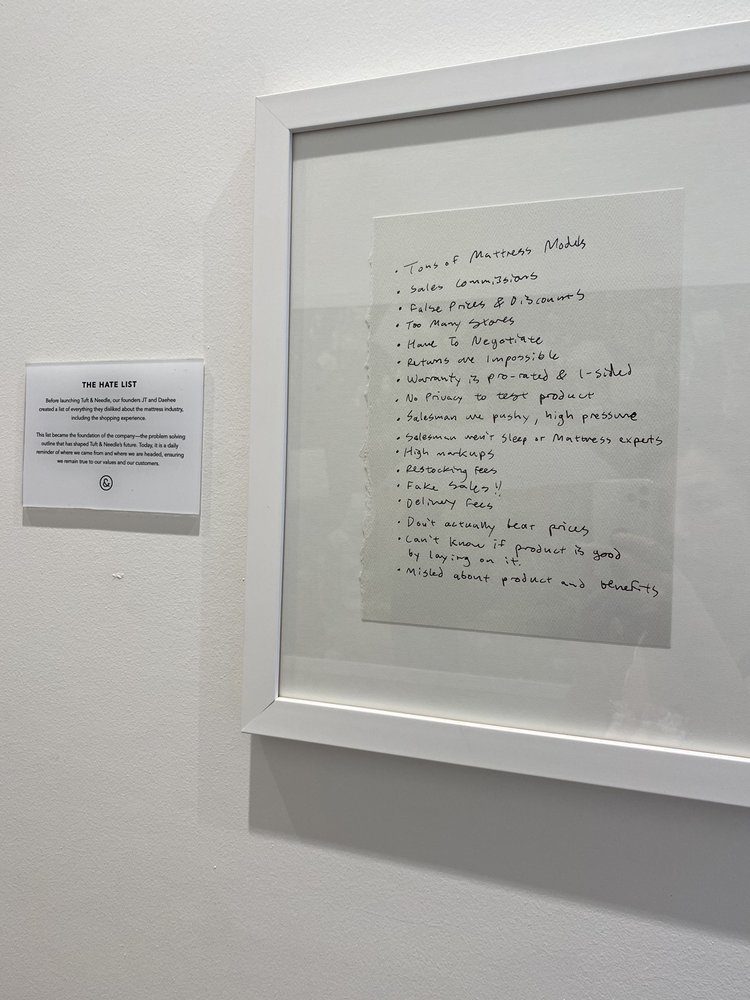 THE HATE LIST
Before launching Tuft & Needle, our founders JT and Daehee
created a list of everything they disliked about the mattress industry,
including the shopping experience.
This list became the foundation of the company—the problem solving
outline that has shaped Tuft & Needle's future. Today, it is a daily
reminder of where we came from and where we are headed, ensuring
we remain true to our values and our customers.
&
• Tons of Mattress Models
• Sales Commissions
• False Prices & Discounts
• Too Many Stores
• Have To Negotiate
• Returns are Impossible
• Warranty is pro-rated & 1-sided
• No Privacy to test product
• Salesman are pushy, high pressure
• Salesman weren't sleep or Mattress experts
• High markups
• Restocking Fees
• Fake Sales!!
• Delivery Fees
• Don't actually beat prices
• Can't know if product is good
by laying on it.
• Misled about product and benefits